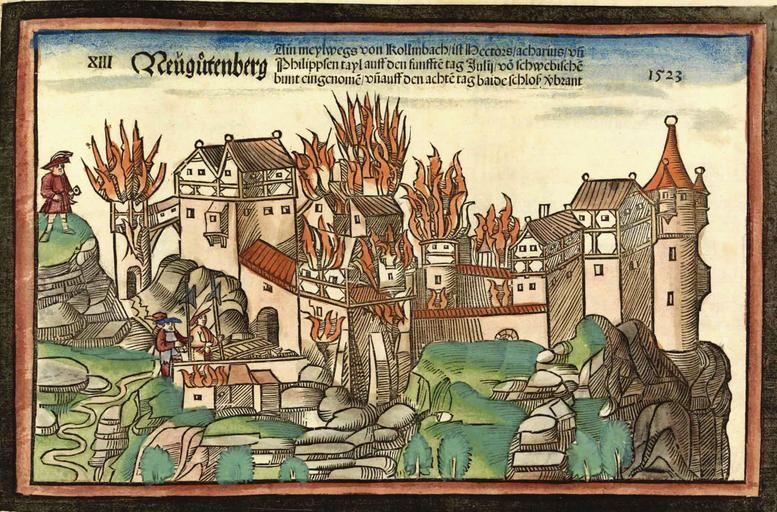 XIII Neügůtenberg
Ain meylwegs von Kollmbach/ist Hectors/acharius/vñ
Philippsen tayl auff den funfftē tag Julij/võ schwebischē
bunt eingenomē/vñ auff den achtē tag baide schloß v̈bzant
1523